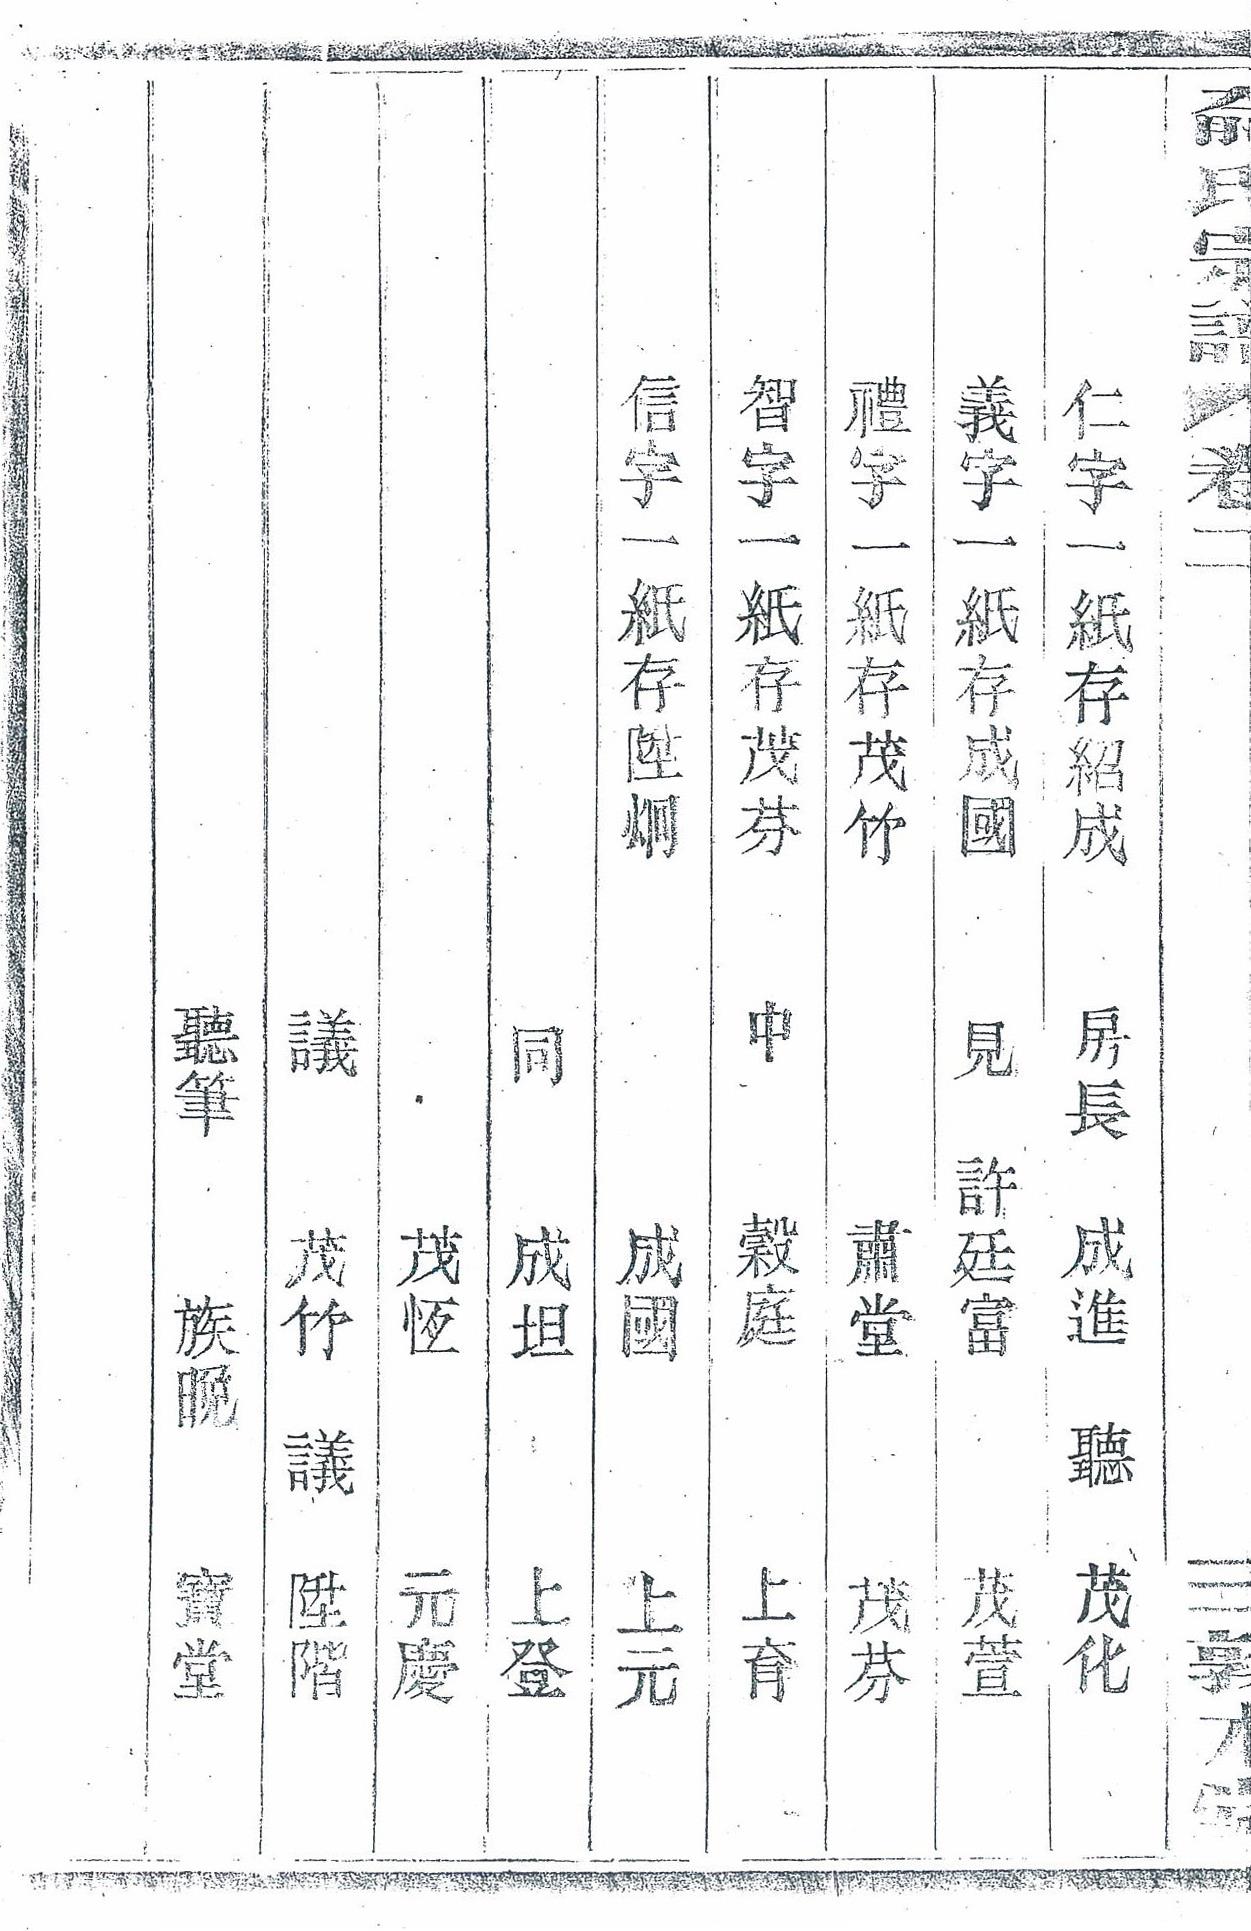 俞氏宗譜 卷二 三 敦本堂
仁字一紙存紹成 房長 成進 聽 茂化
義字一紙存成國 見 許廷富 茂萱
禮字一紙存茂竹 肅堂 茂芬
智字一紙存茂芬 中 穀庭 上育
信字一紙存陞炯 成國 上元
同 成坦 上登
茂恆 元慶
議 茂竹 議 陞階
聽筆 族晚 寶堂